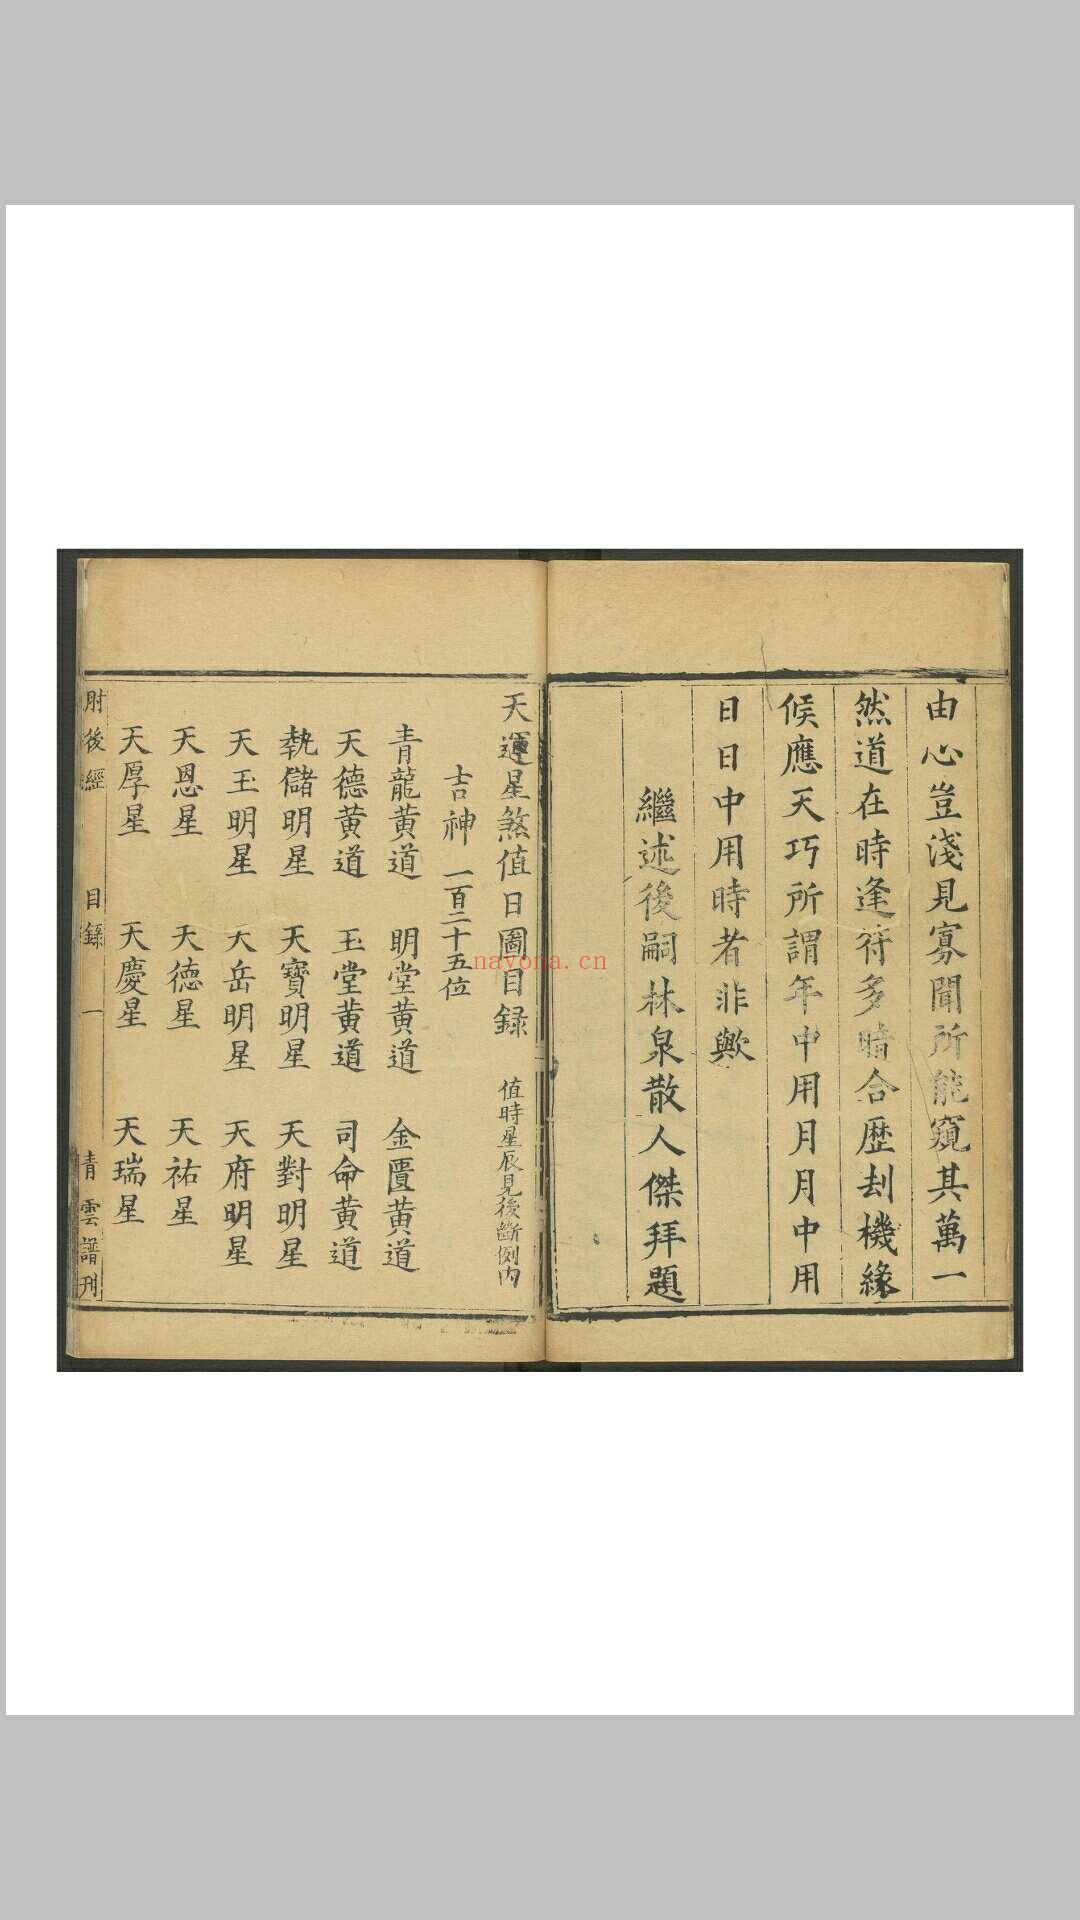 由心豈淺見寡聞所能窺其萬一
然道在時逢符多暗合歷刦機緣
候應天巧所謂年中用月月中用
日日中用時者非歟
繼述後嗣林泉散人傑拜題
天運星煞值日圖目録 值時星辰見後斷例内
吉神 一百二十五位
青龍黃道 明堂黃道 金匱黃道
天德黃道 玉堂黃道 司命黃道
執儲明星 天寶明星 天對明星
天玉明星 天岳明星 天府明星
天恩星 天德星 天祐星
天厚星 天慶星 天瑞星
肘後經 目録 一 青雲譜刊
nayona.cn